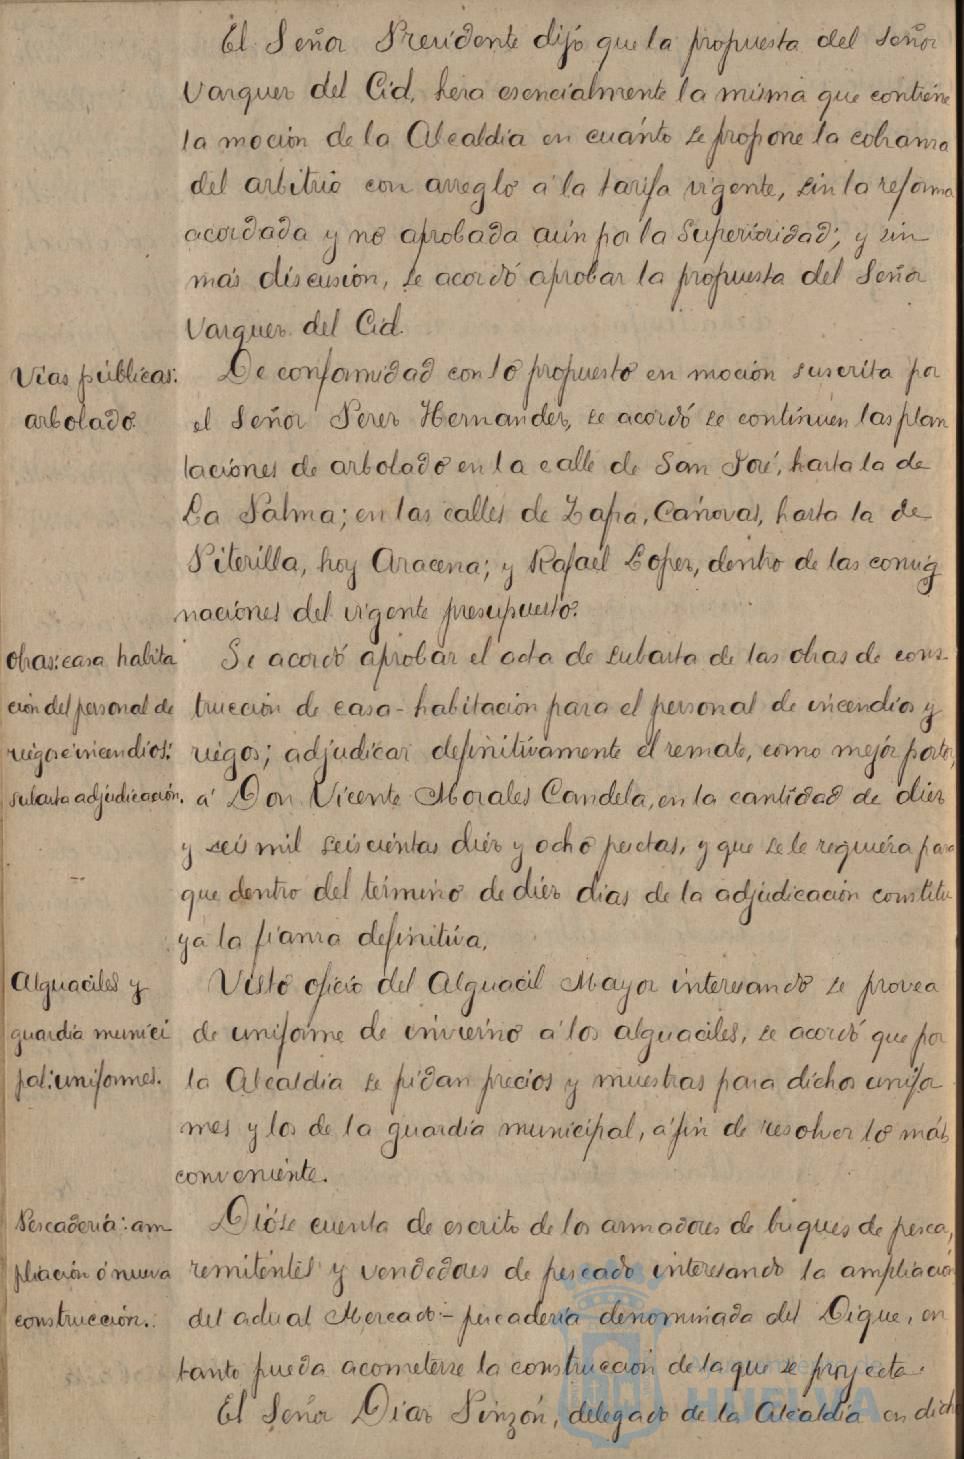 El Señor Presidente dijo que la propuesta del Señor
Varquer del Cid, hera esencialmente la misma que contiene
la moción de la Alcaldía en cuánto se propone la cobranza
del arbitrio con arreglo á la tarifa vigente, sin la reforma
acordada y no aprobada aún por la Superioridad; y sin
más discusión, se acordó aprobar la propuesta del Señor
Varquer del Cid.
Vías públicas:
arbolado.
De conformidad con lo propuesto en moción suscrita por
el Señor Perez Hernandez, se acordó se continúen las plan
taciones de arbolado en la calle de San José, hasta la de
La Palma; en las calles de Zafra, Cánovas, hasta la de
Piterilla, hoy Aracena; y Rafael Lopez, dentro de las consig
naciones del vigente presupuesto.
Obras: casa habita
ción del personal de
riegos e incendios:
subasta adjudicación.
Se acordó aprobar el acta de subasta de las obras de cons-
trucción de casa-habitación para el personal de incendios y
riegos; adjudicar definitivamente el remate, como mejor postor,
á Don Vicente Morales Candela, en la cantidad de diez
y seis mil seiscientas diez y ocho pesetas, y que se le requiera para
que dentro del término de diez días de la adjudicación constitu
ya la fianza definitiva.
Alguaciles y
guardia munici
pal: uniformes.
Visto oficio del Alguacil Mayor interesando se provea
de uniforme de invierno á los alguaciles, se acordó que por
la Alcaldía se pidan precios y muestras para dichos unifor
mes y los de la guardia municipal, á fin de resolver lo más
conveniente.
Pescadería: am
pliación ó nueva
construcción.
Dióse cuenta de escrito de los armadores de buques de pesca,
remitentes y vendedores de pescado interesando la ampliación
del actual Mercado-pescadería denominada del Dique, en
tanto pueda acometerse la construcción de la que se proyecta.
El Señor Díaz Pinzón, delegado de la Alcaldía en dicho
HUELVA